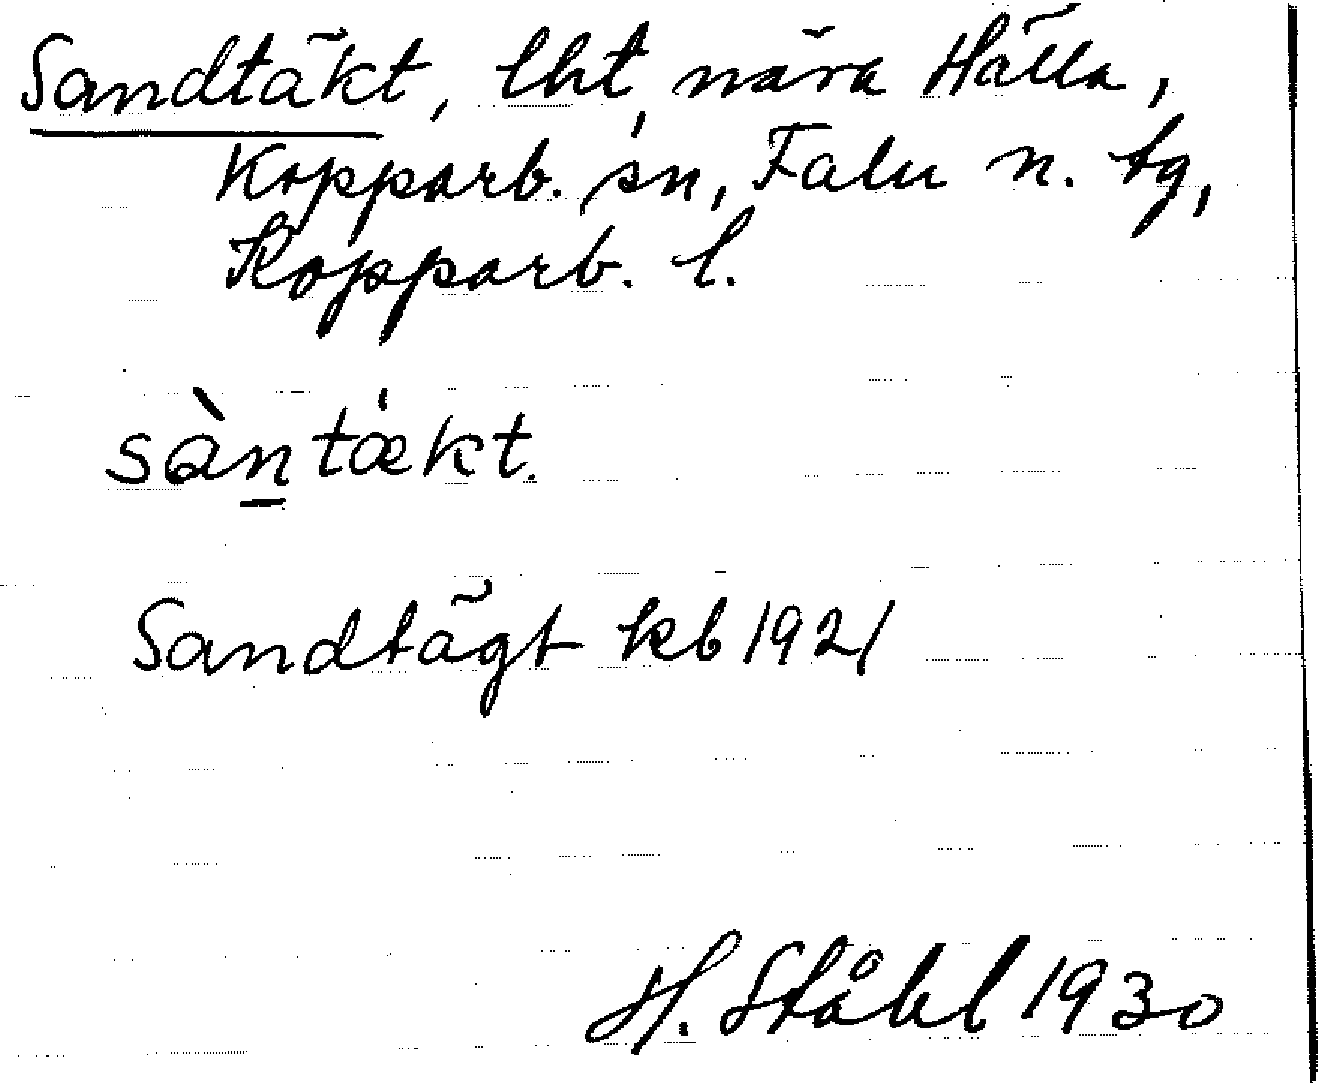 Sandtäkt, lht, nära Hälla,
Kopparb. sn, Falu n. tg,
Kopparb. l.
sàn̠tækt.
Sandtägt kb 1921
H. Ståhl 1930